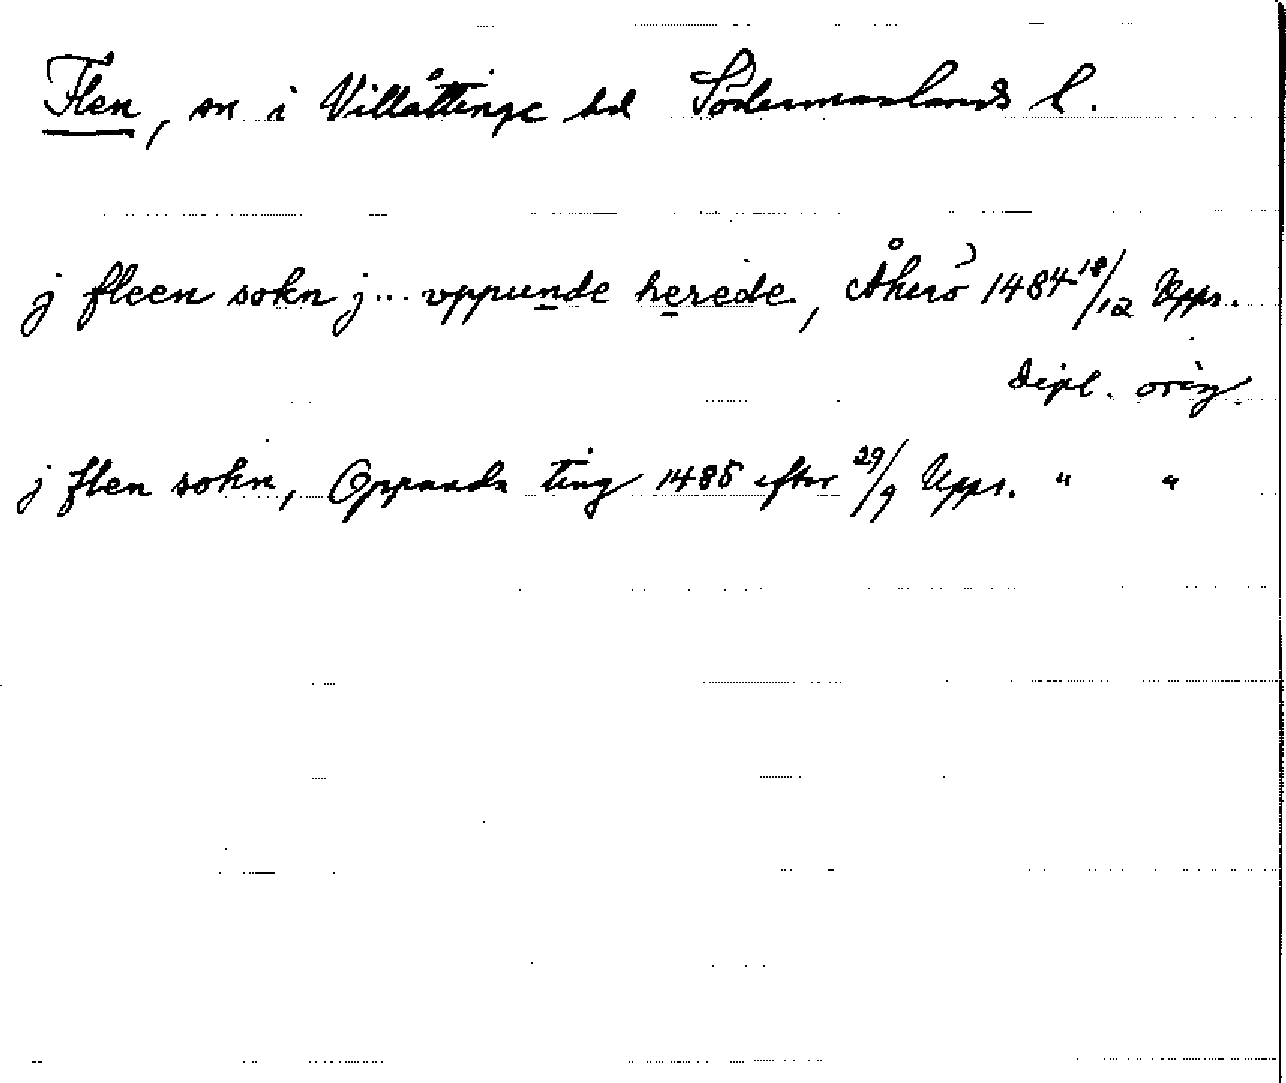 Flen, sn i Villåttinge hd Södermanlands l.
j fleen sokn j... vppunde herede, Åkerö 1484 18/12 Upps.
dipl. orig.
j flen sokn, Oppunda ting 1485 efter 29/9 Upps. " "